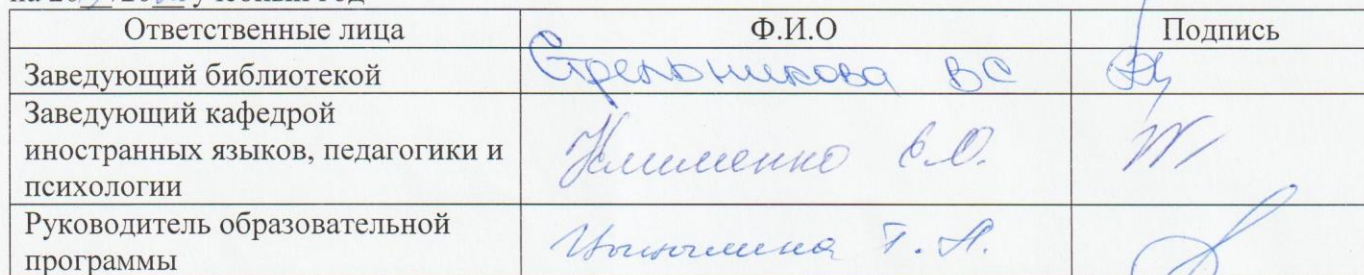 учебный год
Ответственные лица Ф.И.О Подпись
Заведующий библиотекой Стрельникова ВС
Заведующий кафедрой
иностранных языков, педагогики и
психологии
Клименко Е.О.
Руководитель образовательной
программы
Т. А.